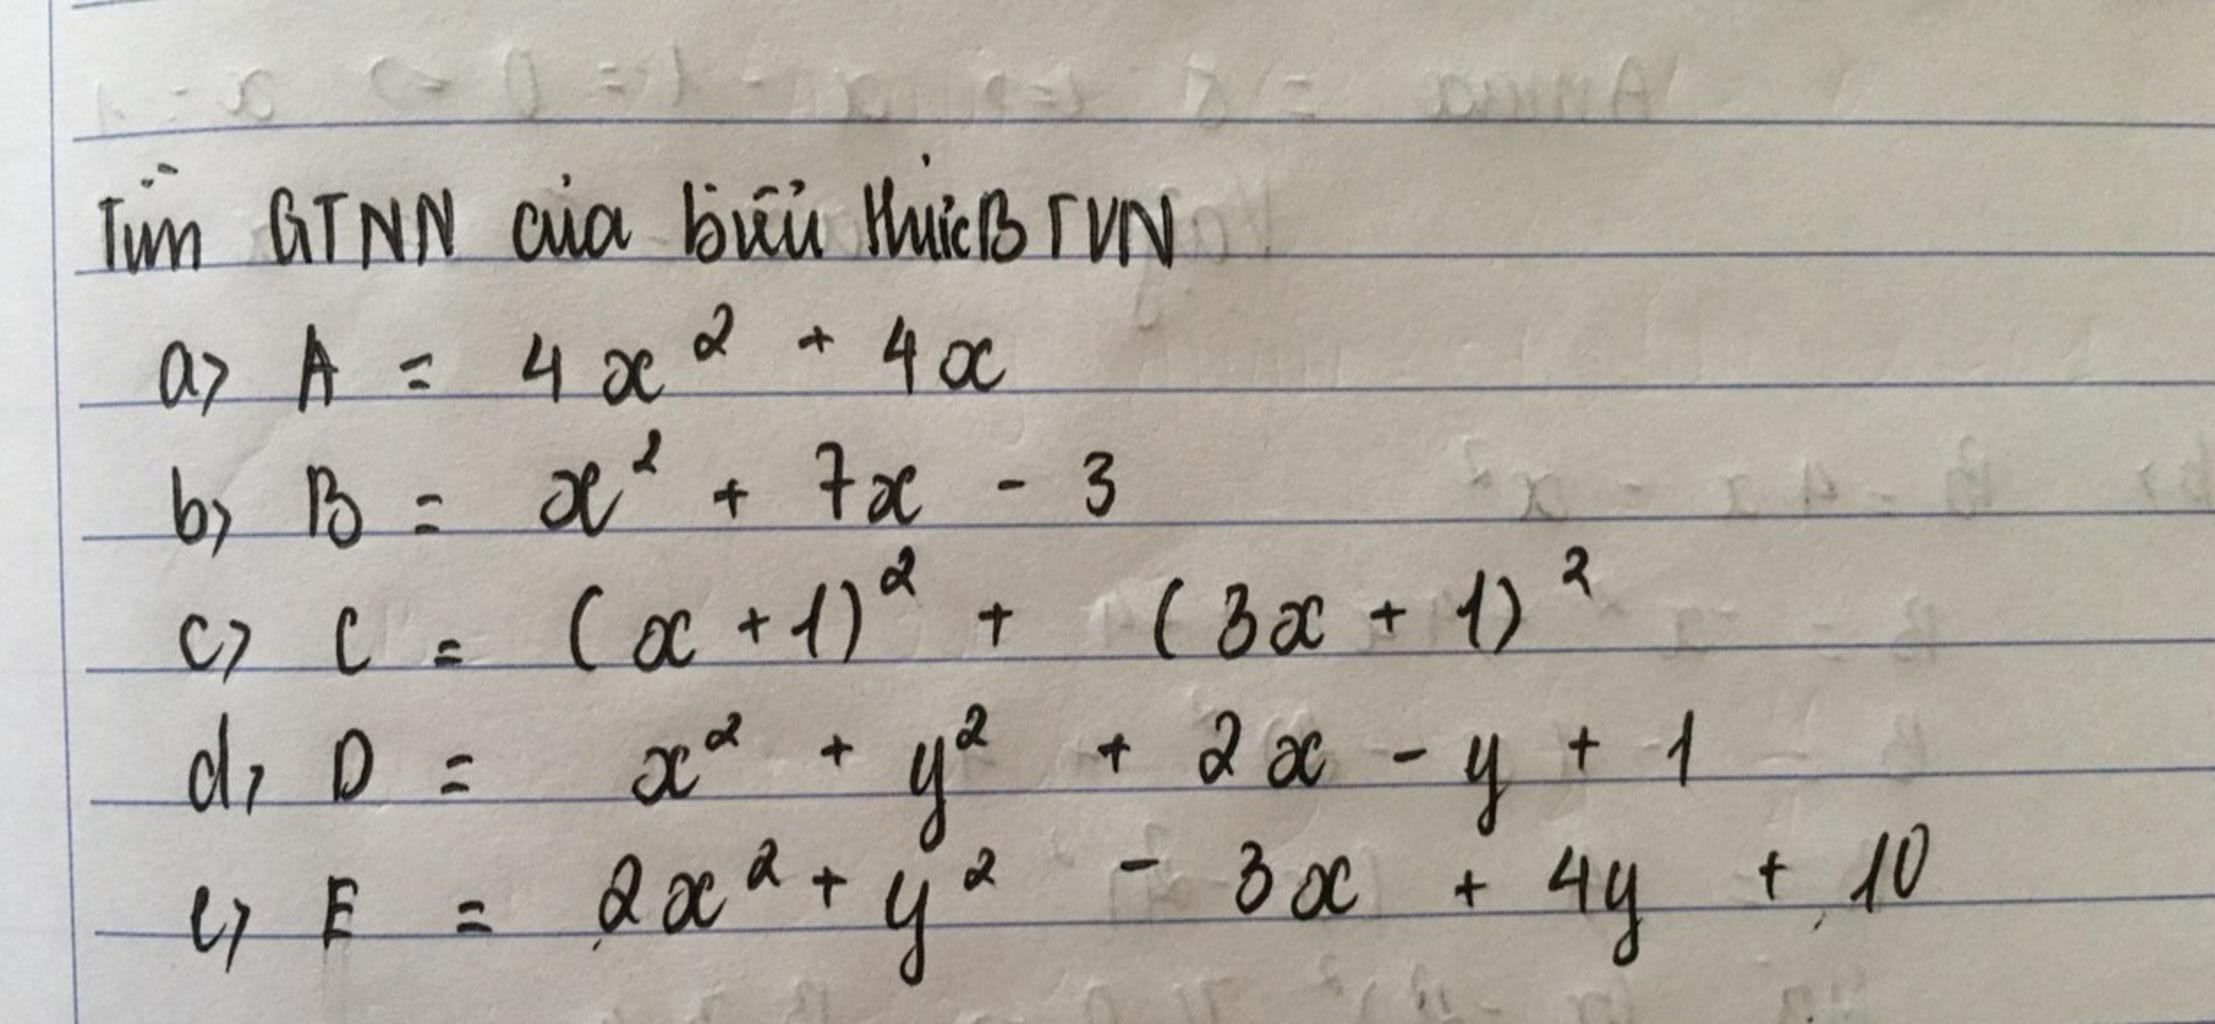 Tìm GTNN của biểu thức BTVN
a> A = 4x² + 4x
b> B = x² + 7x - 3
c> C = (x + 1)² + (3x + 1)²
d> D = x² + y² + 2x - y + 1
e> E = 2x² + y² - 3x + 4y + 10